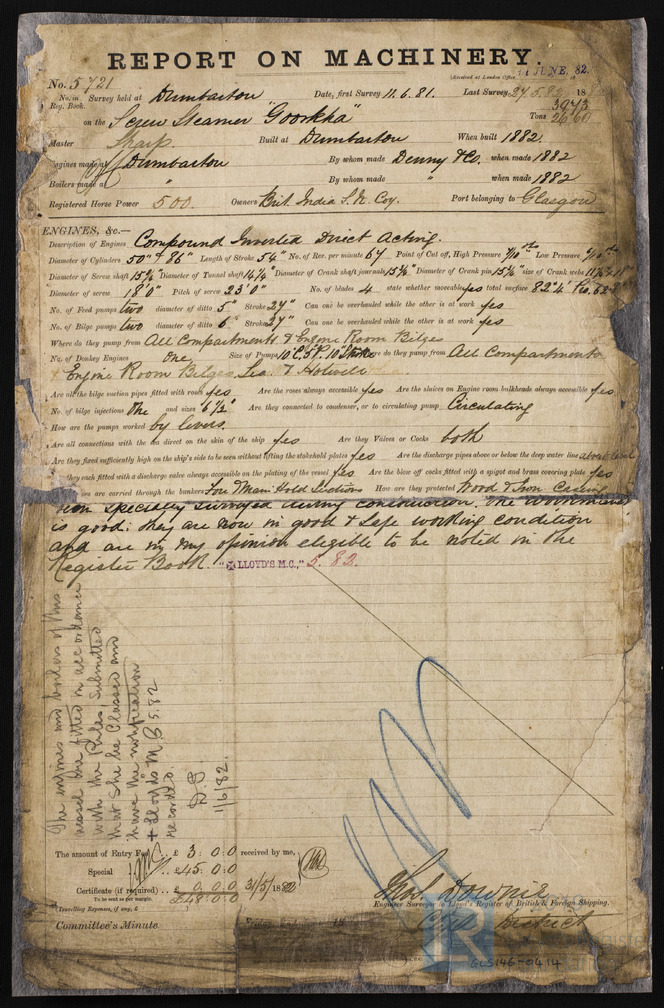 REPORT ON MACHINERY.
No. 5721
(Received at London Office JUNE, 82.
No. in Survey held at Dumbarton Date, first Survey 11.6.81. Last Survey 27.5.82 18
Reg. Book.
3943
on the Screw Steamer "Goorkha" Tons 2660
Master Sharp. Built at Dumbarton When built 1882.
Engines made at Dumbarton By whom made Denny & Co. when made 1882
Boilers made at " By whom made " when made 1882
Registered Horse Power 500. Owners Brit. India S. N. Coy. Port belonging to Glasgow
ENGINES, &c.—
Description of Engines Compound Inverted Direct Acting.
Diameter of Cylinders 50" & 86" Length of Stroke 54" No. of Rev. per minute 67 Point of Cut off, High Pressure 7/10ths Low Pressure
Diameter of Screw shaft 15 3/4" Diameter of Tunnel shaft 14 1/4" Diameter of Crank shaft journals 15 3/4" Diameter of Crank pin 15 3/4" size of Crank webs
Diameter of screw 18'0" Pitch of screw 23'0" No. of blades 4 state whether moveable yes total surface 82
No. of Feed pumps two diameter of ditto 5" Stroke 27" Can one be overhauled while the other is at work yes
No. of Bilge pumps two diameter of ditto 6" Stroke 27" Can one be overhauled while the other is at work yes
Where do they pump from All Compartments & Engine Room Bilges
No. of Donkey Engines One Size of Pumps 10 Stroke Where do they pump from All Compartments
& Engine Room Bilges, Sea & Hotwell
Are all the bilge suction pipes fitted with roses yes Are the roses always accessible yes Are the sluices on Engine room bulkheads always accessible yes
No. of bilge injections One and sizes 6 1/2" Are they connected to condenser, or to circulating pump Circulating
How are the pumps worked by levers.
Are all connections with the sea direct on the skin of the ship yes Are they Valves or Cocks both
Are they fixed sufficiently high on the ship's side to be seen without lifting the stokehold plates yes Are the discharge pipes above or below the deep water line above
they each fitted with a discharge valve always accessible on the plating of the vessel yes Are the blow off cocks fitted with a spigot and brass covering plate yes
are carried through the bunkers Fore & Main Hold Suctions How are they protected Wood & Iron Casing
been specially surveyed during construction. The workmanship
is good: they are now in good & safe working condition
and are in my opinion eligible to be noted in the
Register Book. "✠ LLOYD'S M.C.," 5.82.
The engines and boilers of this
vessel are fitted in accordance
with the Rules, Submitted
that she be Classed and
have the notification
+ Lloyds M C 5.82
recorded.
1/6/82.
The amount of Entry Fee .. £ 3 : 0 : 0 received by me,
Special .. £45 : 0 : 0
Certificate (if required) .. £ 0 : 0 : 0 31/5/1882
To be sent as per margin.
£48 : 0 : 0
(Travelling Expenses, if any, £
Thos Downie
Engineer Surveyor to Lloyd's Register of British & Foreign Shipping.
Clyde District
Committee's Minute
18
GLS146-0414